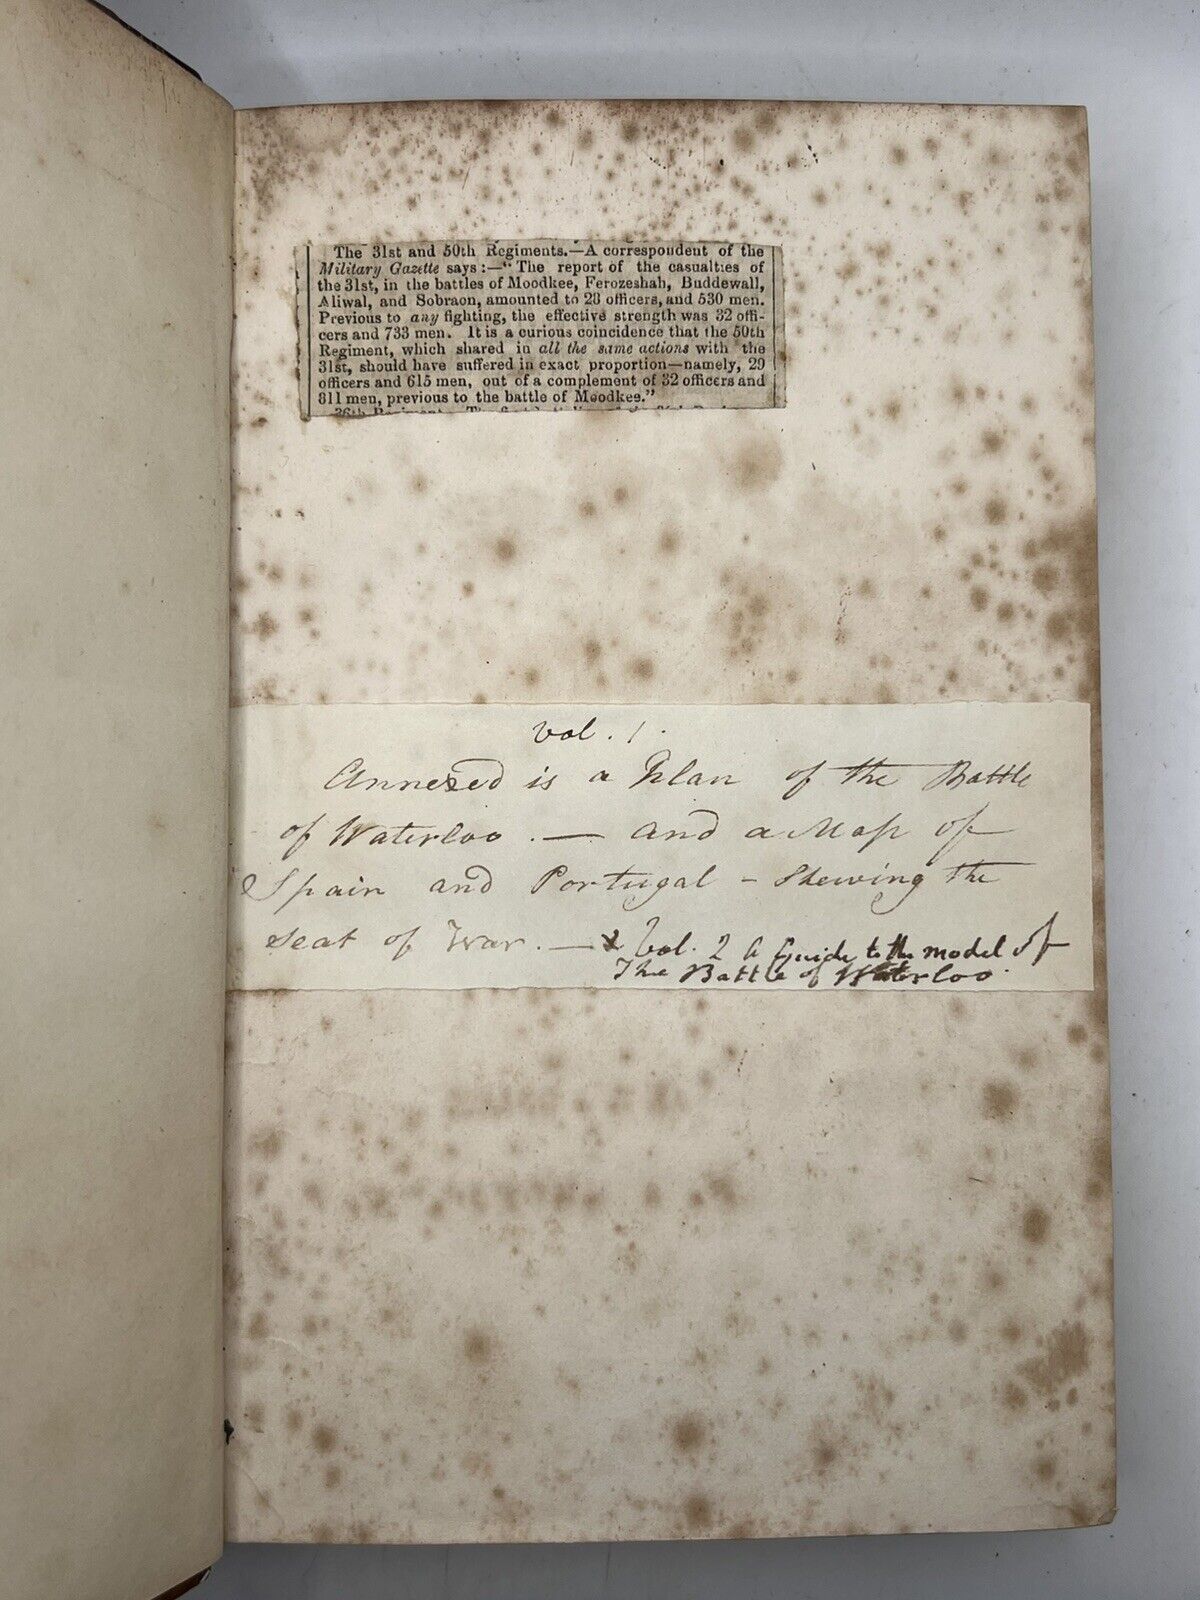 The 31st and 50th Regiments.—A correspondent of the
Military Gazette says:—"The report of the casualties of
the 31st, in the battles of Moodkee, Ferozeshah, Buddewall,
Aliwal, and Sobraon, amounted to 28 officers, and 530 men.
Previous to any fighting, the effective strength was 32 offi-
cers and 733 men. It is a curious coincidence that the 50th
Regiment, which shared in all the same actions with the
31st, should have suffered in exact proportion—namely, 29
officers and 615 men, out of a complement of 32 officers and
811 men, previous to the battle of Moodkee."
Vol. 1.
Annexed is a Plan of the Battle
of Waterloo. — and a Map of
Spain and Portugal - Shewing the
Seat of War. — & Vol. 2 A Guide to the model of
The Battle of Waterloo.